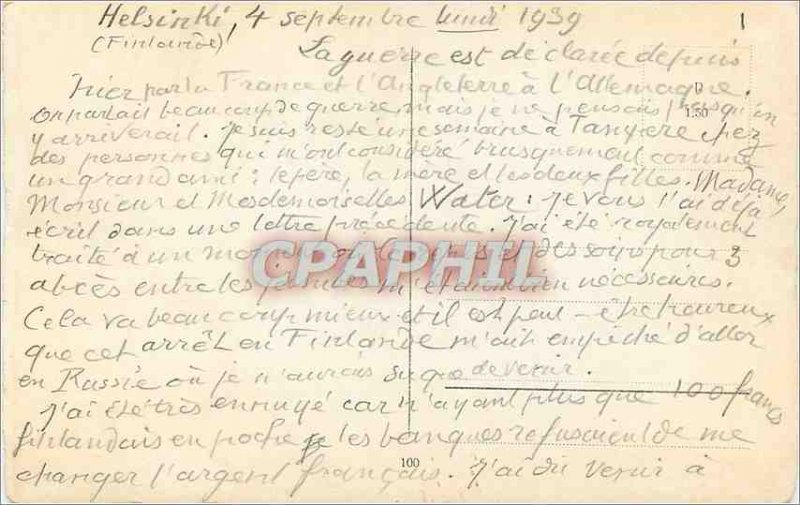 Helsinki, 4 septembre lundi 1939
1
(Finlande)
La guerre est déclarée depuis
hier par la France et l'Angleterre à l'Allemagne.
D
1.50
On parlait beaucoup de guerre, mais je ne pensais pas qu'on
y arriverait. Je suis resté une semaine à chez
des personnes qui m'ont considéré brusquement comme
un grand ami : le père, la mère et les deux filles. Madame,
Monsieur et Mesdemoiselles Water : je vous l'ai déjà
écrit dans une lettre précédente. J'ai été royalement
traité à un moment où le repos et des soins pour 3
CPAPHIL
abcès entre les jambes m'étaient bien nécessaires.
Cela va beaucoup mieux et il est peut-être heureux
que cet arrêt en Finlande m'ait empêché d'aller
en Russie où je n'aurais su que devenir.
J'ai été très ennuyé car n'ayant plus que 100 francs
finlandais en poche les banques refusaient de me
changer l'argent français. J'ai dû venir à
100